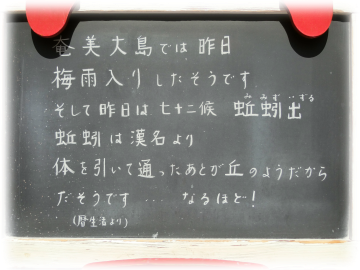 奄美大島では昨日
梅雨入りしたそうです
そして昨日は七十二候 蚯蚓出
みみずいずる
蚯蚓は漢名より
体を引いて通ったあとが丘のようだから
だそうです … なるほど!
(暦生活より)